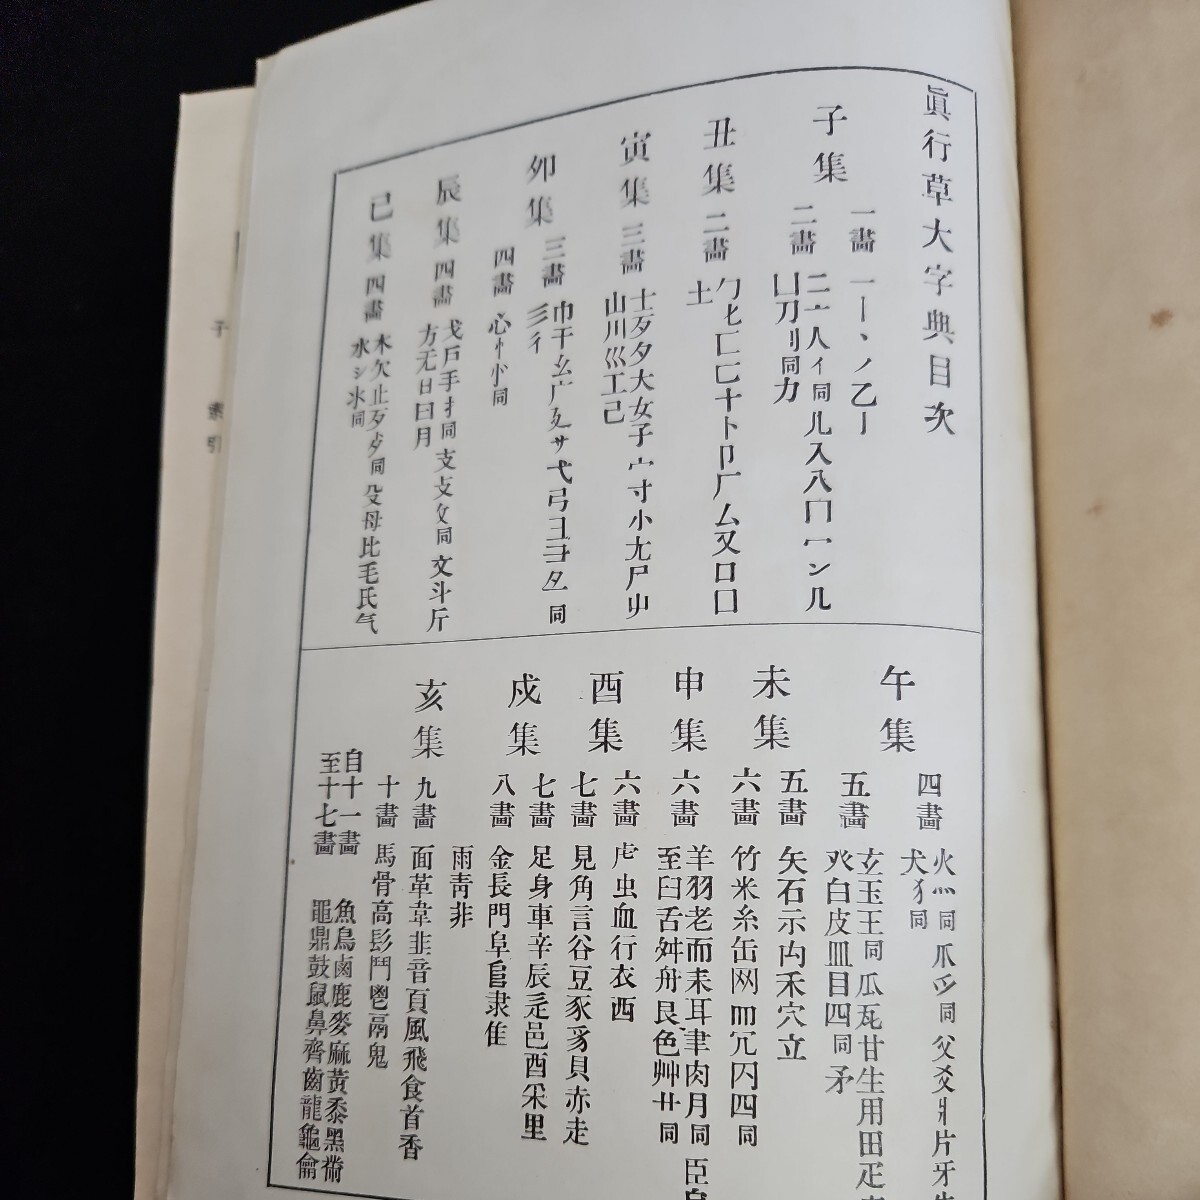 眞行草大字典目次
子集
一畫 一丨丶丿乙亅
二畫 二亠人亻同儿入八冂冖冫几
凵刀刂同力
丑集
二畫 勹匕匚匸十卜卩厂厶又口囗
土
寅集
三畫 士夂夕大女子宀寸小尢尸屮
山川巛工己
卯集
三畫 巾干幺广廴廾弋弓彐彑同
彡彳
四畫 心忄㣺同
辰集
四畫 戈戶手扌同支攴攵同文斗斤
方无日曰月
巳集
四畫 木欠止歹歺同殳毋比毛氏气
水氵氺同
午集
四畫 火灬同爪爫同父爻爿片牙
犬犭同
五畫 玄玉王同瓜瓦甘生用田疋
癶白皮皿目罒同矛
未集
五畫 矢石示禸禾穴立
六畫 竹米糸缶网罒同
申集
六畫 羊羽老而耒耳聿肉月同臣自
至臼舌舛舟艮色艸艹同
酉集
六畫 虍虫血行衣襾
七畫 見角言谷豆豕豸貝赤走
戌集
七畫 足身車辛辰辵邑酉釆里
八畫 金長門阜隶隹
雨靑非
亥集
九畫 面革韋韭音頁風飛食首香
十畫 馬骨高髟鬥鬯鬲鬼
自十一畫
至十七畫
魚鳥鹵鹿麥麻黃黍黑黹
黽鼎鼓鼠鼻齊齒龍龜龠
子
索引